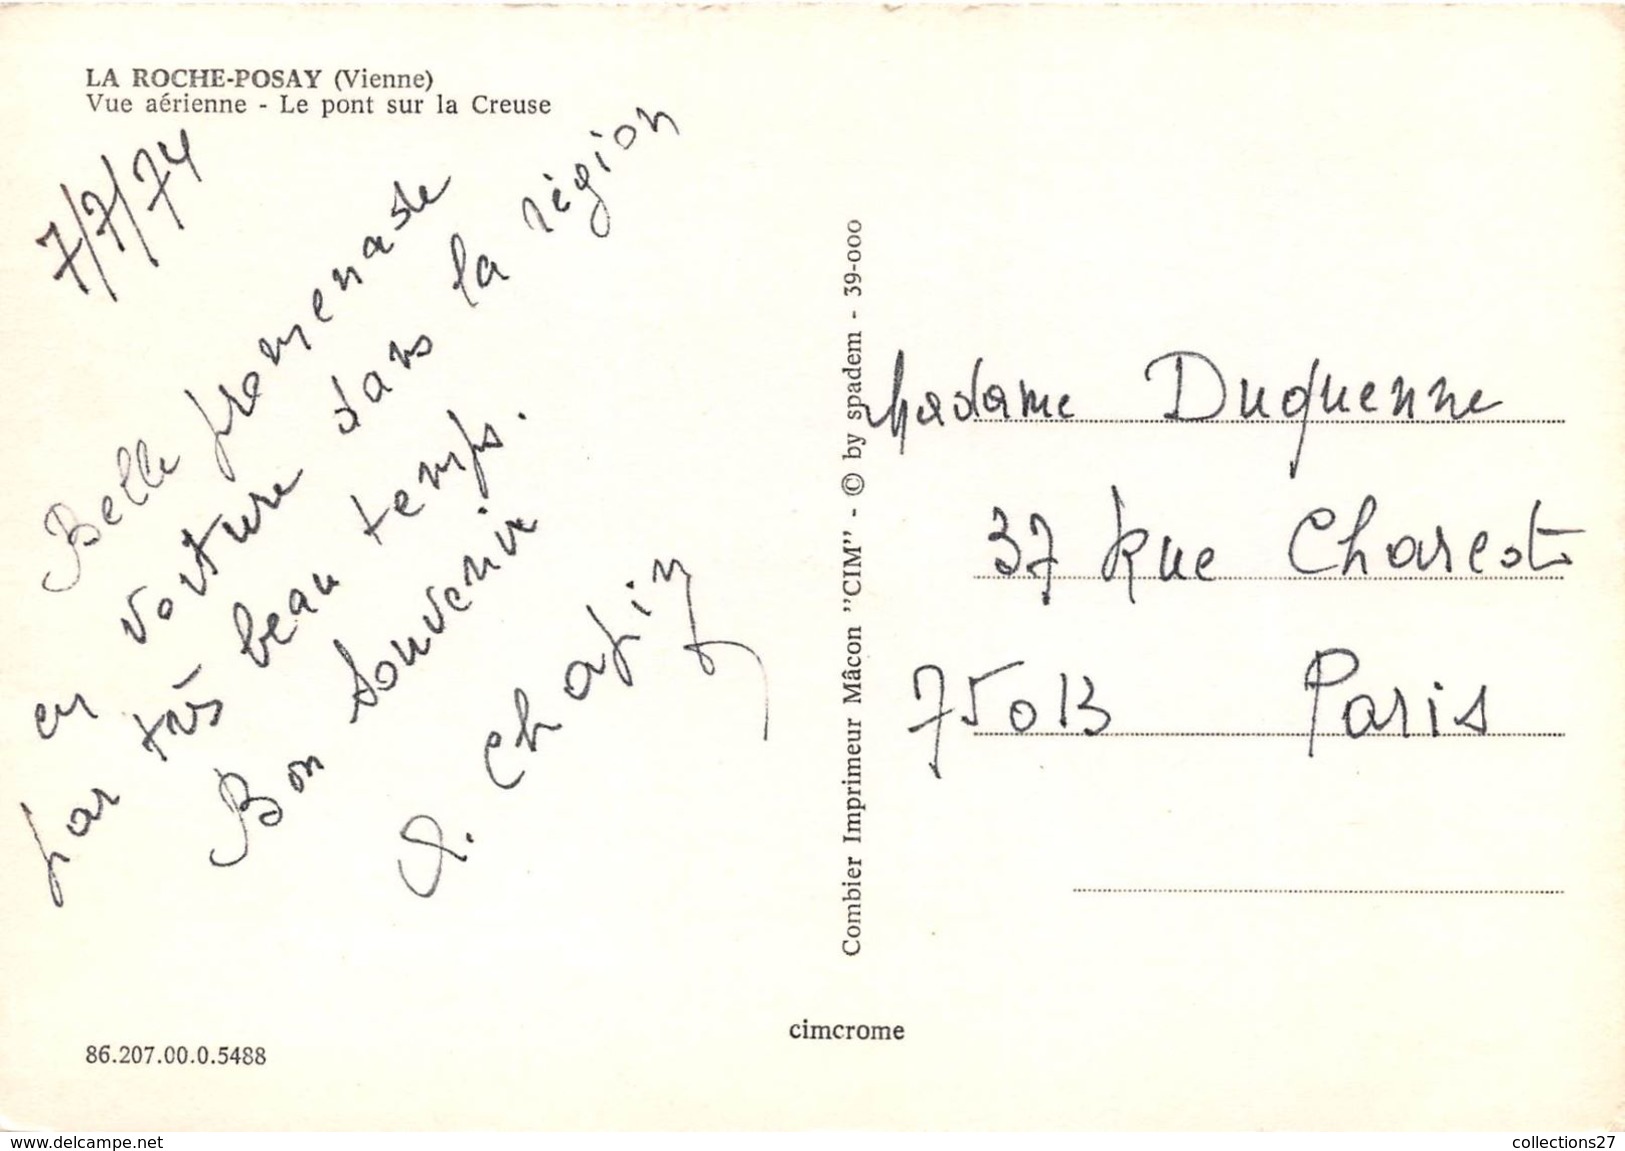 LA ROCHE-POSAY (Vienne)
Vue aérienne - Le pont sur la Creuse
7/7/74
Belle promenade
en voiture dans la région
par très beau temps.
Bon souvenir
Combier Imprimeur Mâcon "CIM" - © by spadem - 39-000
Madame Duquenne
37 Rue Charcot
75013 Paris
cimcrome
86.207.00.0.5488
www.delcampe.net
collections27